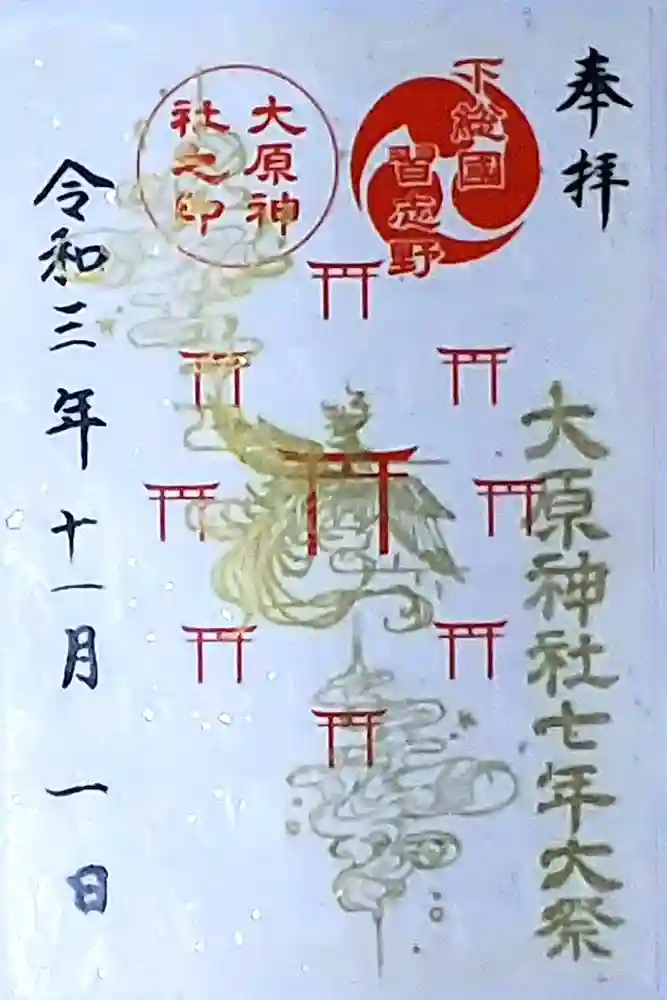 奉拝
下総國
習志野
大原神
社之印
大原神社七年大祭
令和三年十一月一日